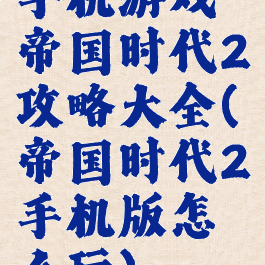 手机游戏
帝国时代2
攻略大全(
帝国时代2
手机版怎
么玩)